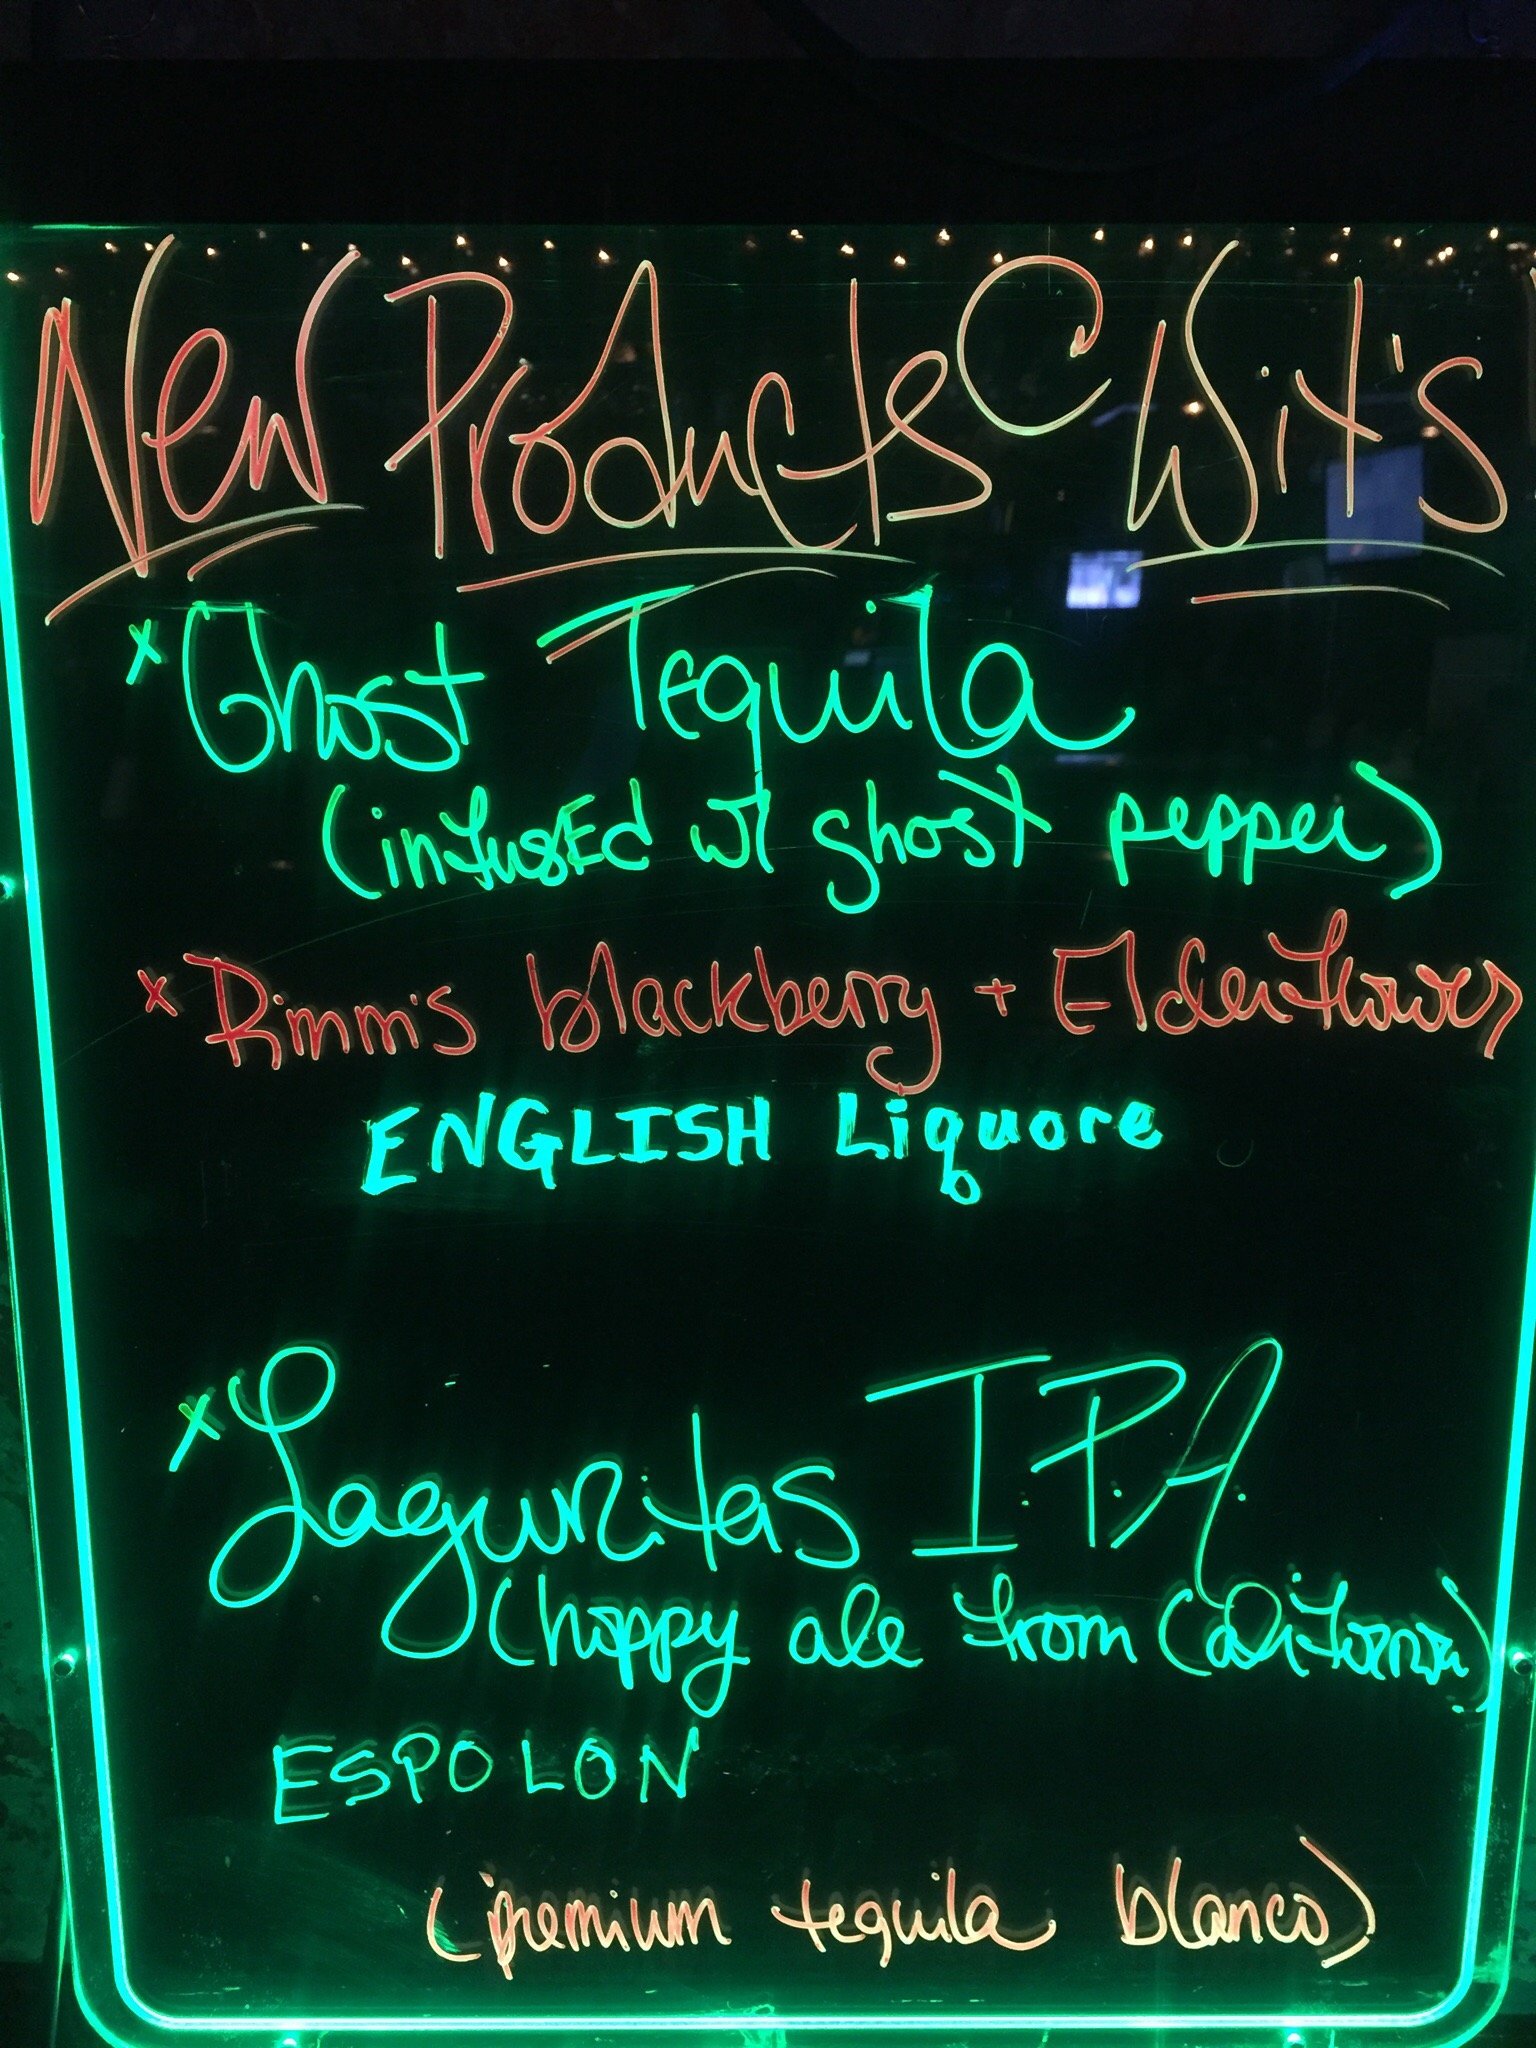 New Products C Wit's
*Ghost Tequila
(infusEd w/ ghost pepper)
*Pimm's blackberry + Elderflower
ENGLISH Liquore
*Lagunitas I.P.A.
(hoppy ale from California)
ESPOLON
(premium tequila blanco)